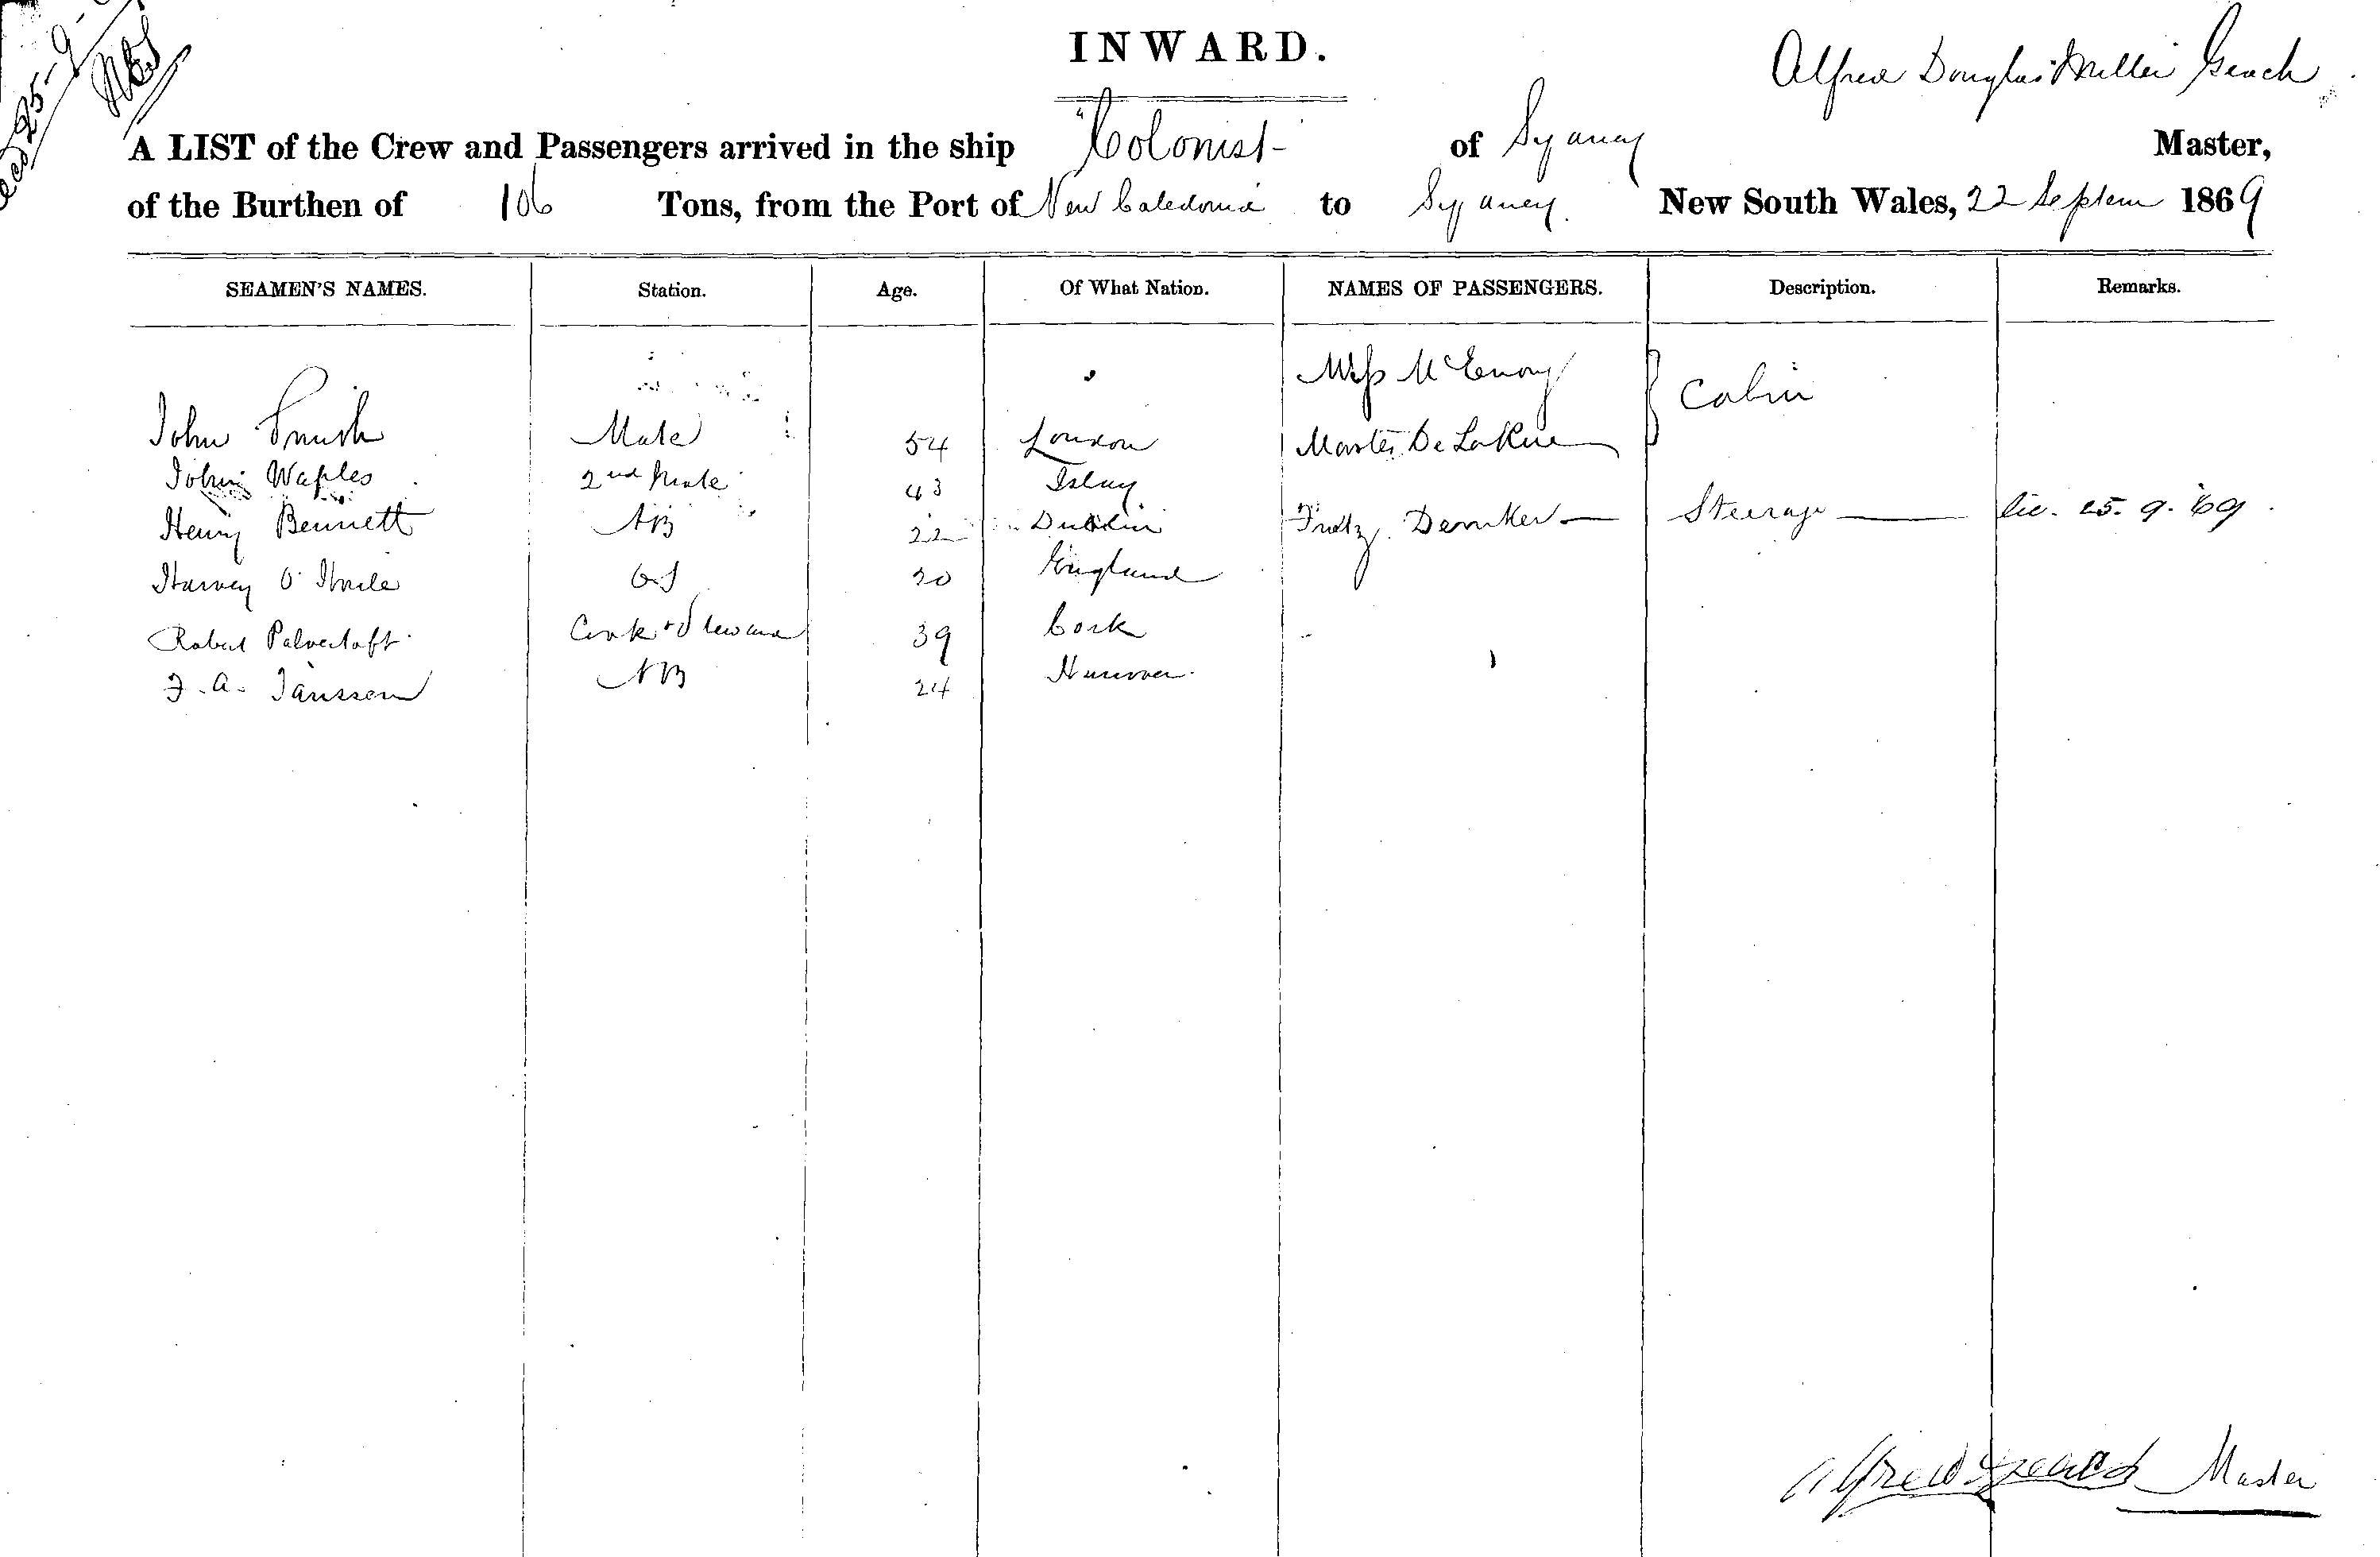 25-9-
INWARD.
Alfred Douglas Miller Geach
A LIST of the Crew and Passengers arrived in the ship "Colonist" of Sydney Master,
of the Burthen of 106 Tons, from the Port of New Caledonia to Sydney. New South Wales, 22 Septem 1869
SEAMEN'S NAMES. Station. Age. Of What Nation. NAMES OF PASSENGERS. Description. Remarks.
Miss McEnvoy Cabin
John Smith Mate 54 London Master De La Rue
John Waples 2nd Mate 43 Islay
Henry Bennett AB 22 Dublin Fritz Demker Steerage lic. 25.9.69.
Harvey O' OS 20 England
Robert Cook & Steward 39 Cork
J. A. Janssen AB 24 Hanover.
Alfred Geach Master